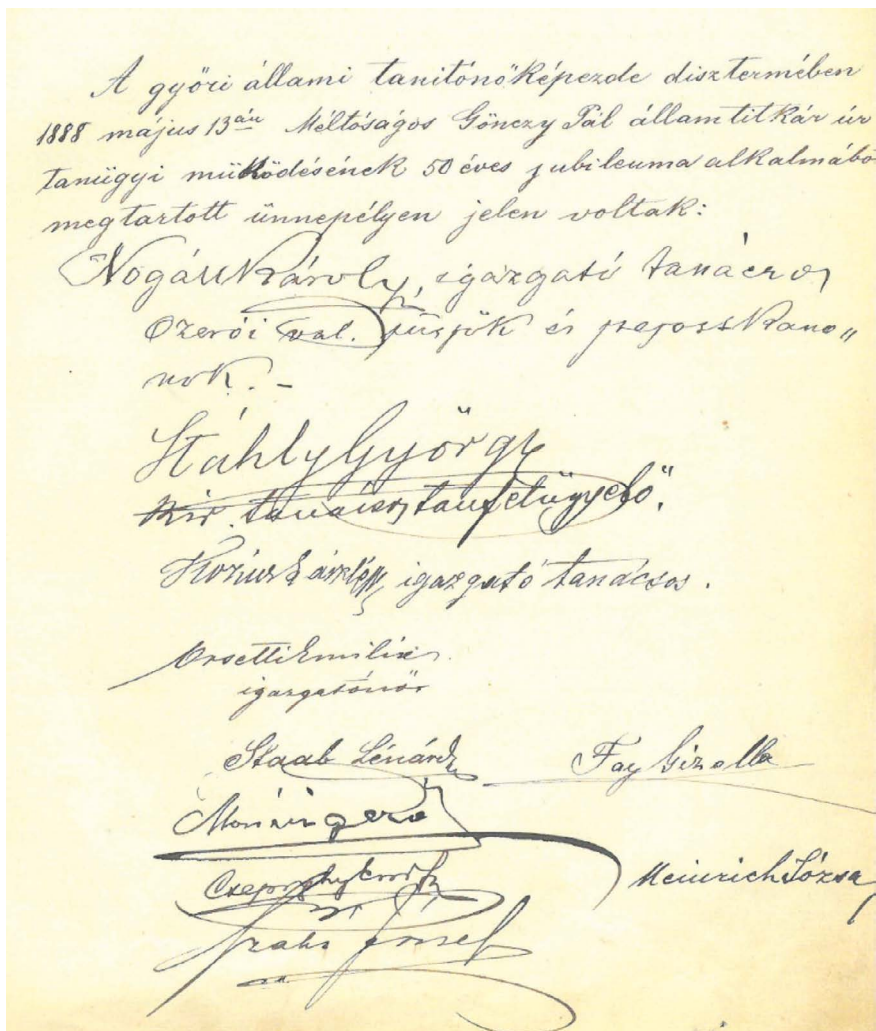 A győri állami tanitónőképezde disztermében
1888 május 13án Méltóságos Gönczy Pál államtitkár úr
tanügyi működésének 50 éves jubileuma alkalmábó
megtartott ünnepélyen jelen voltak:
Nogáll Károly, igazgató tanácsos
val. püspök és kano„
nok. –
Stáhly György
kir. tanácsos, tanfelügyelő.
igazgató tanácsos.
Orsetti Emilia
igazgatónő
Staab Lénárd
Fay Gizella
Heinrich Józsa
József